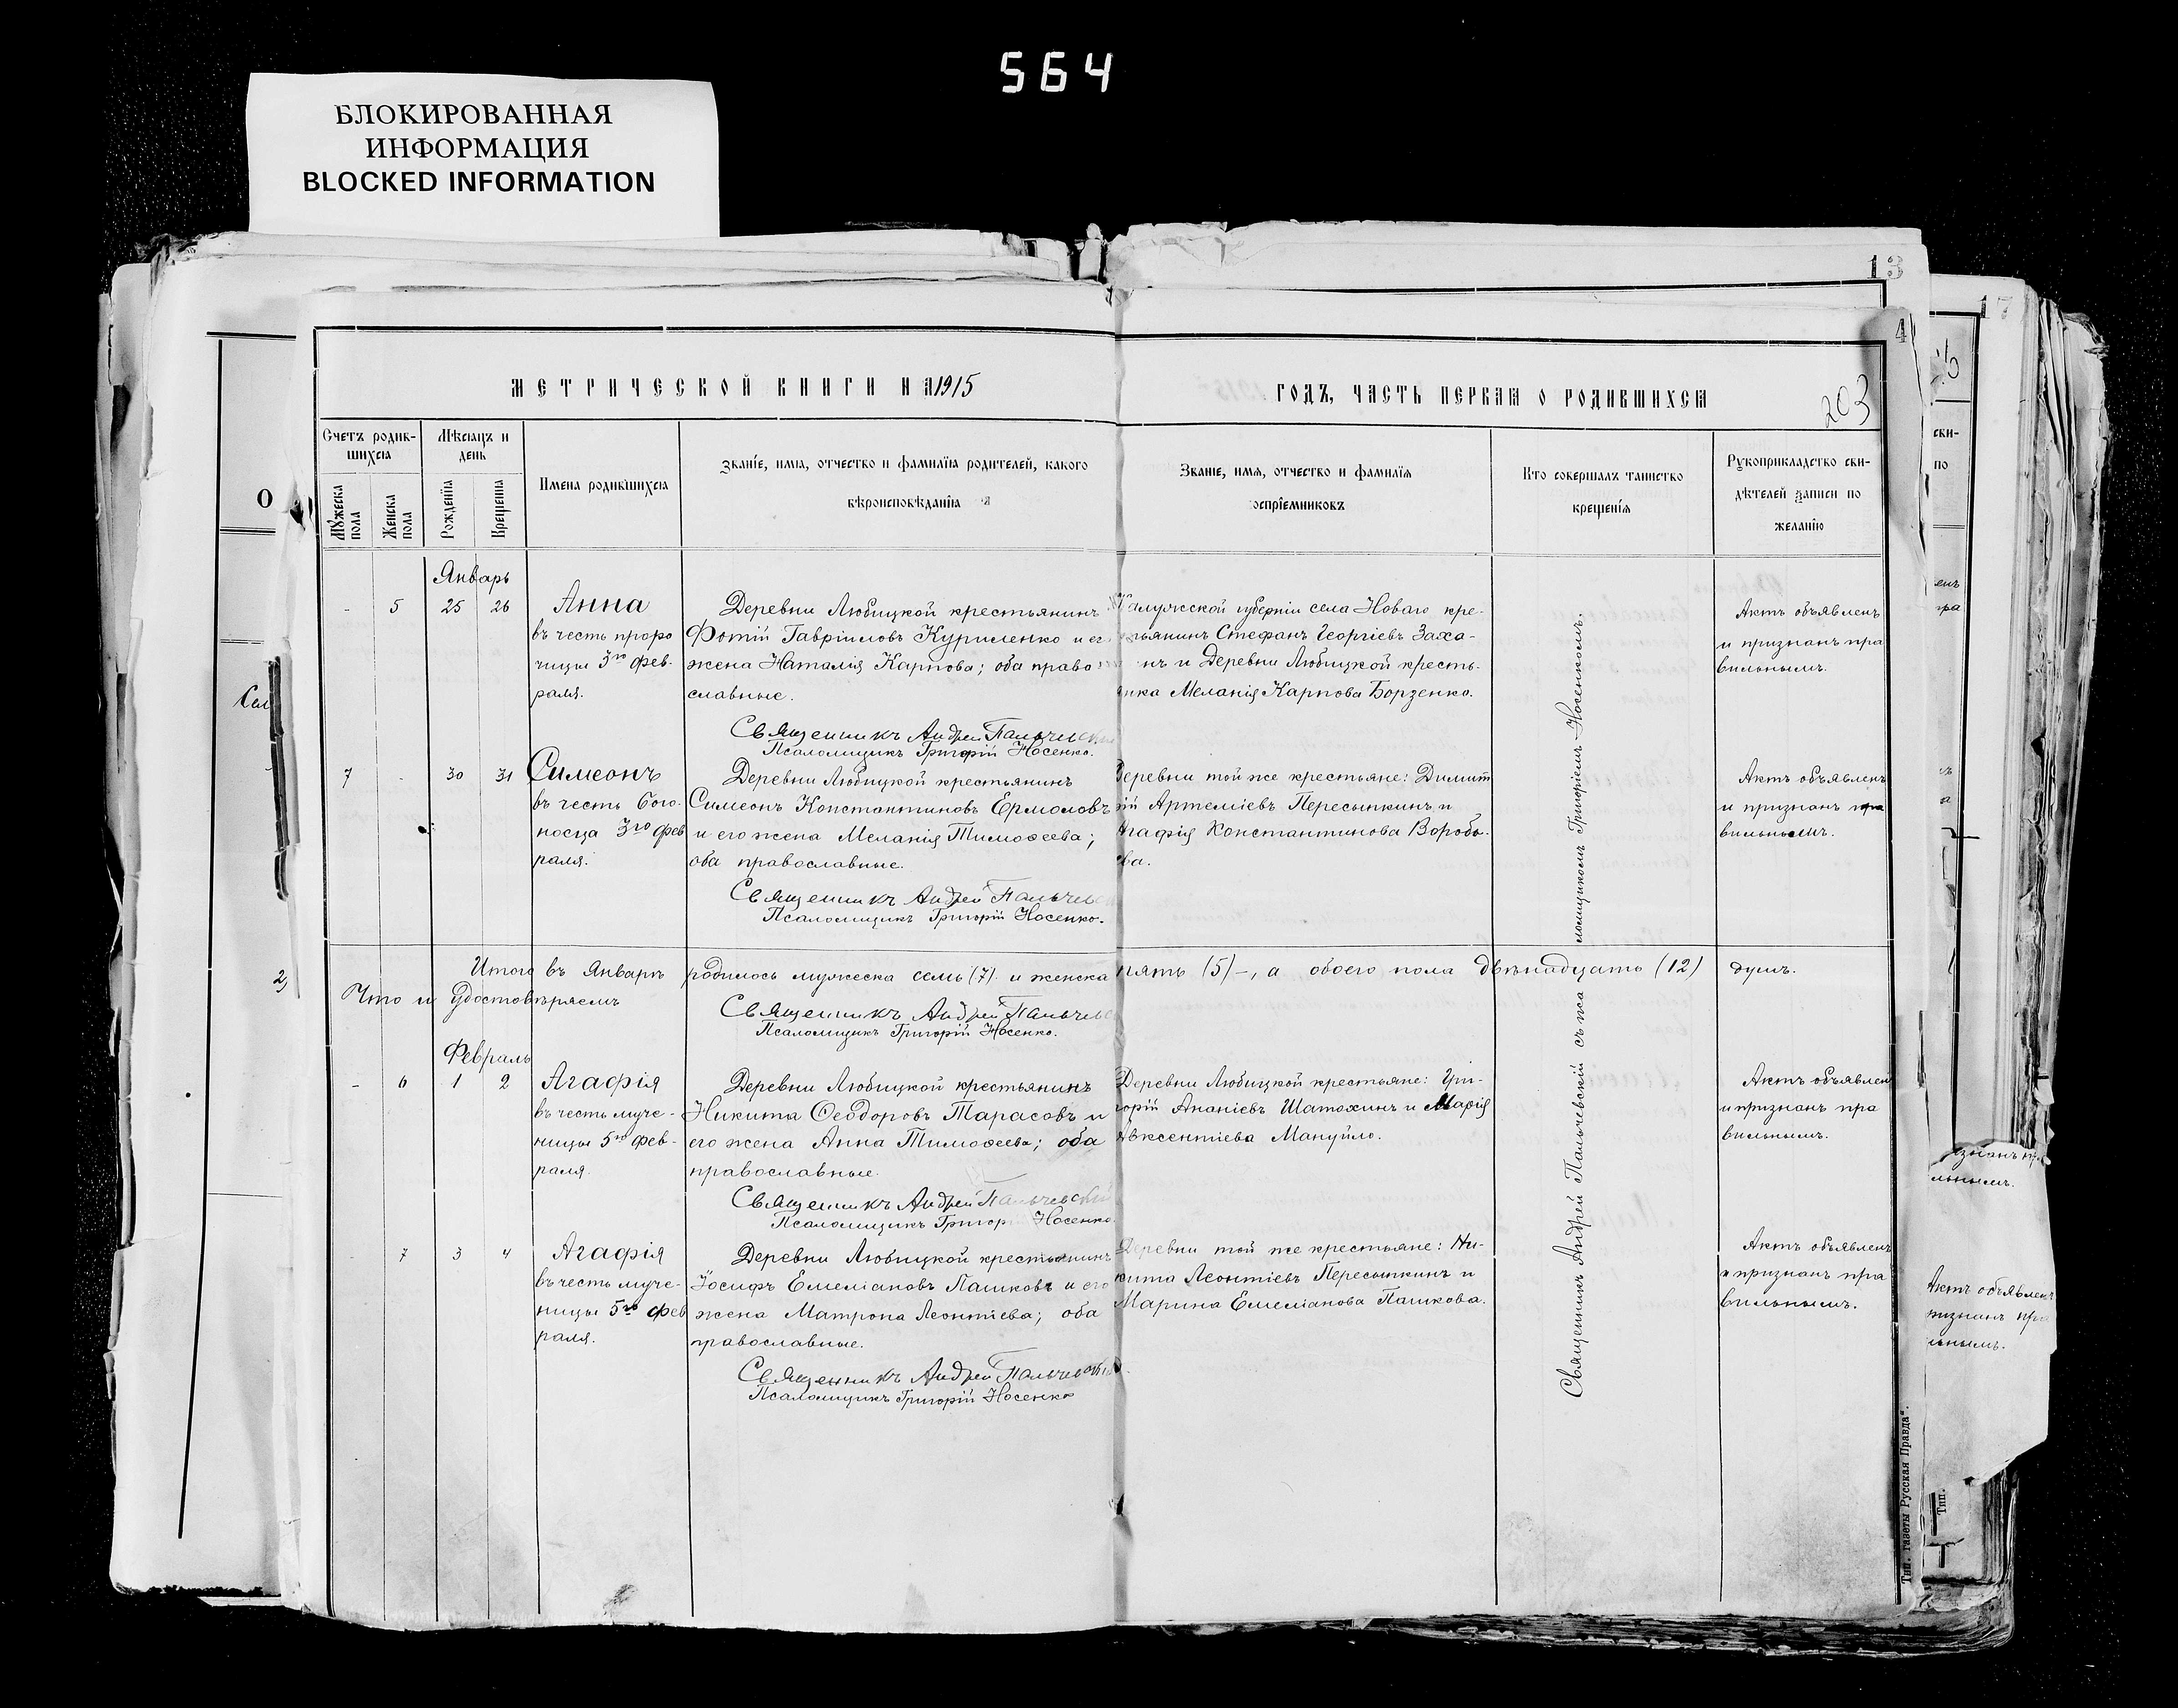 564
БЛОКИРОВАННАЯ
ИНФОРМАЦИЯ
BLOCKED INFORMATION
13
17
4
203
МЕТРИЧЕСКОЙ КНИГИ НА 1915 ГОДЪ, ЧАСТЬ ПЕРВАЯ О РОДИВШИХСЯ
Счетъ родив-
шихся
Мѣсяцъ и
день
Мужеска пола
Женска пола
Рожденія
Крещенія
Имена родившихся
Званіе, имя, отчество и фамилія родителей, какого
вѣроисповѣданія
Званіе, имя, отчество и фамилія
воспріемниковъ
Кто совершалъ таинство
крещенія
Рукоприкладство сви-
дѣтелей записи по
желанію
Январь
- 5 25 26
Анна
въ честь проро
чицы 3го фев-
раля.
Деревни Любицкой крестьянинъ
Фотій Гавріиловъ Куриленко и ег
жена Наталія Карпова; оба право
славные.
Священникъ Андрей Пальчевскій
Псаломщикъ Григорій Носенко.
Калужской губерніи села Новаго кре-
стьянинъ Стефанъ Георгіевъ Заха-
нъ и Деревни Любицкой кресть-
янка Меланія Карпова Борзенко.
Актъ объявленъ
и признанъ пра
вильнымъ.
7 - 30 31
Симеонъ
въ честь Бого-
носца 3го фев
раля.
Деревни Любицкой крестьянинъ
Симеонъ Константиновъ Ермоловъ
и его жена Меланія Тимоѳеева;
оба православные.
Священникъ Андрей Пальчевс
Псаломщикъ Григорій Носенко.
Деревни той же крестьяне: Димит
рій Артеміевъ Пересыпкинъ и
Агафія Константинова Воробь-
ева.
Актъ объявленъ
и признанъ пра
вильнымъ.
Итого въ Январѣ родилось мужеска семь (7) и женска пять (5)-, а обоего пола двѣнадцать (12) душъ.
Что и удостовѣряемъ
Священникъ Андрей Пальчевс
Псаломщикъ Григорій Носенко.
Февраль
- 6 1 2
Агафія
въ честь муче-
ницы 5го фев-
раля.
Деревни Любицкой крестьянинъ
Никита Ѳеодоровъ Тарасовъ и
его жена Анна Тимоѳеева; оба
православные.
Священникъ Андрей Пальчевскій
Псаломщикъ Григор Носенко
Деревни Любицкой крестьяне: Гри-
горій Ананіевъ Шатохинъ и Марія
Авксентіева Мануйло.
Актъ объявлен
и признанъ пра
вильнымъ.
7 3 4
Агафія
въ честь муче-
ницы 5го фев
раля.
Деревни Любицкой крестьянинъ
Іосифъ Емеліановъ Пашковъ и его
жена Матрона Леонтіева; оба
православные.
Священникъ Андрей Пальчевскій
Псаломщикъ Григорій Носенко
Деревни той же крестьяне: Ни-
кита Леонтіевъ Пересыпкинъ и
Марина Емеліанова Пашкова.
Актъ объявленъ
и признанъ пра
вильнымъ.
Священникъ Андрей Пальчевскій съ псаломщикомъ Григоріемъ Носенкомъ.
Тип. газеты „Русская Правда“.
О
2
сви-
по
льнымъ.
Актъ объявленъ
ризнанъ пра
льнымъ.
Тип.